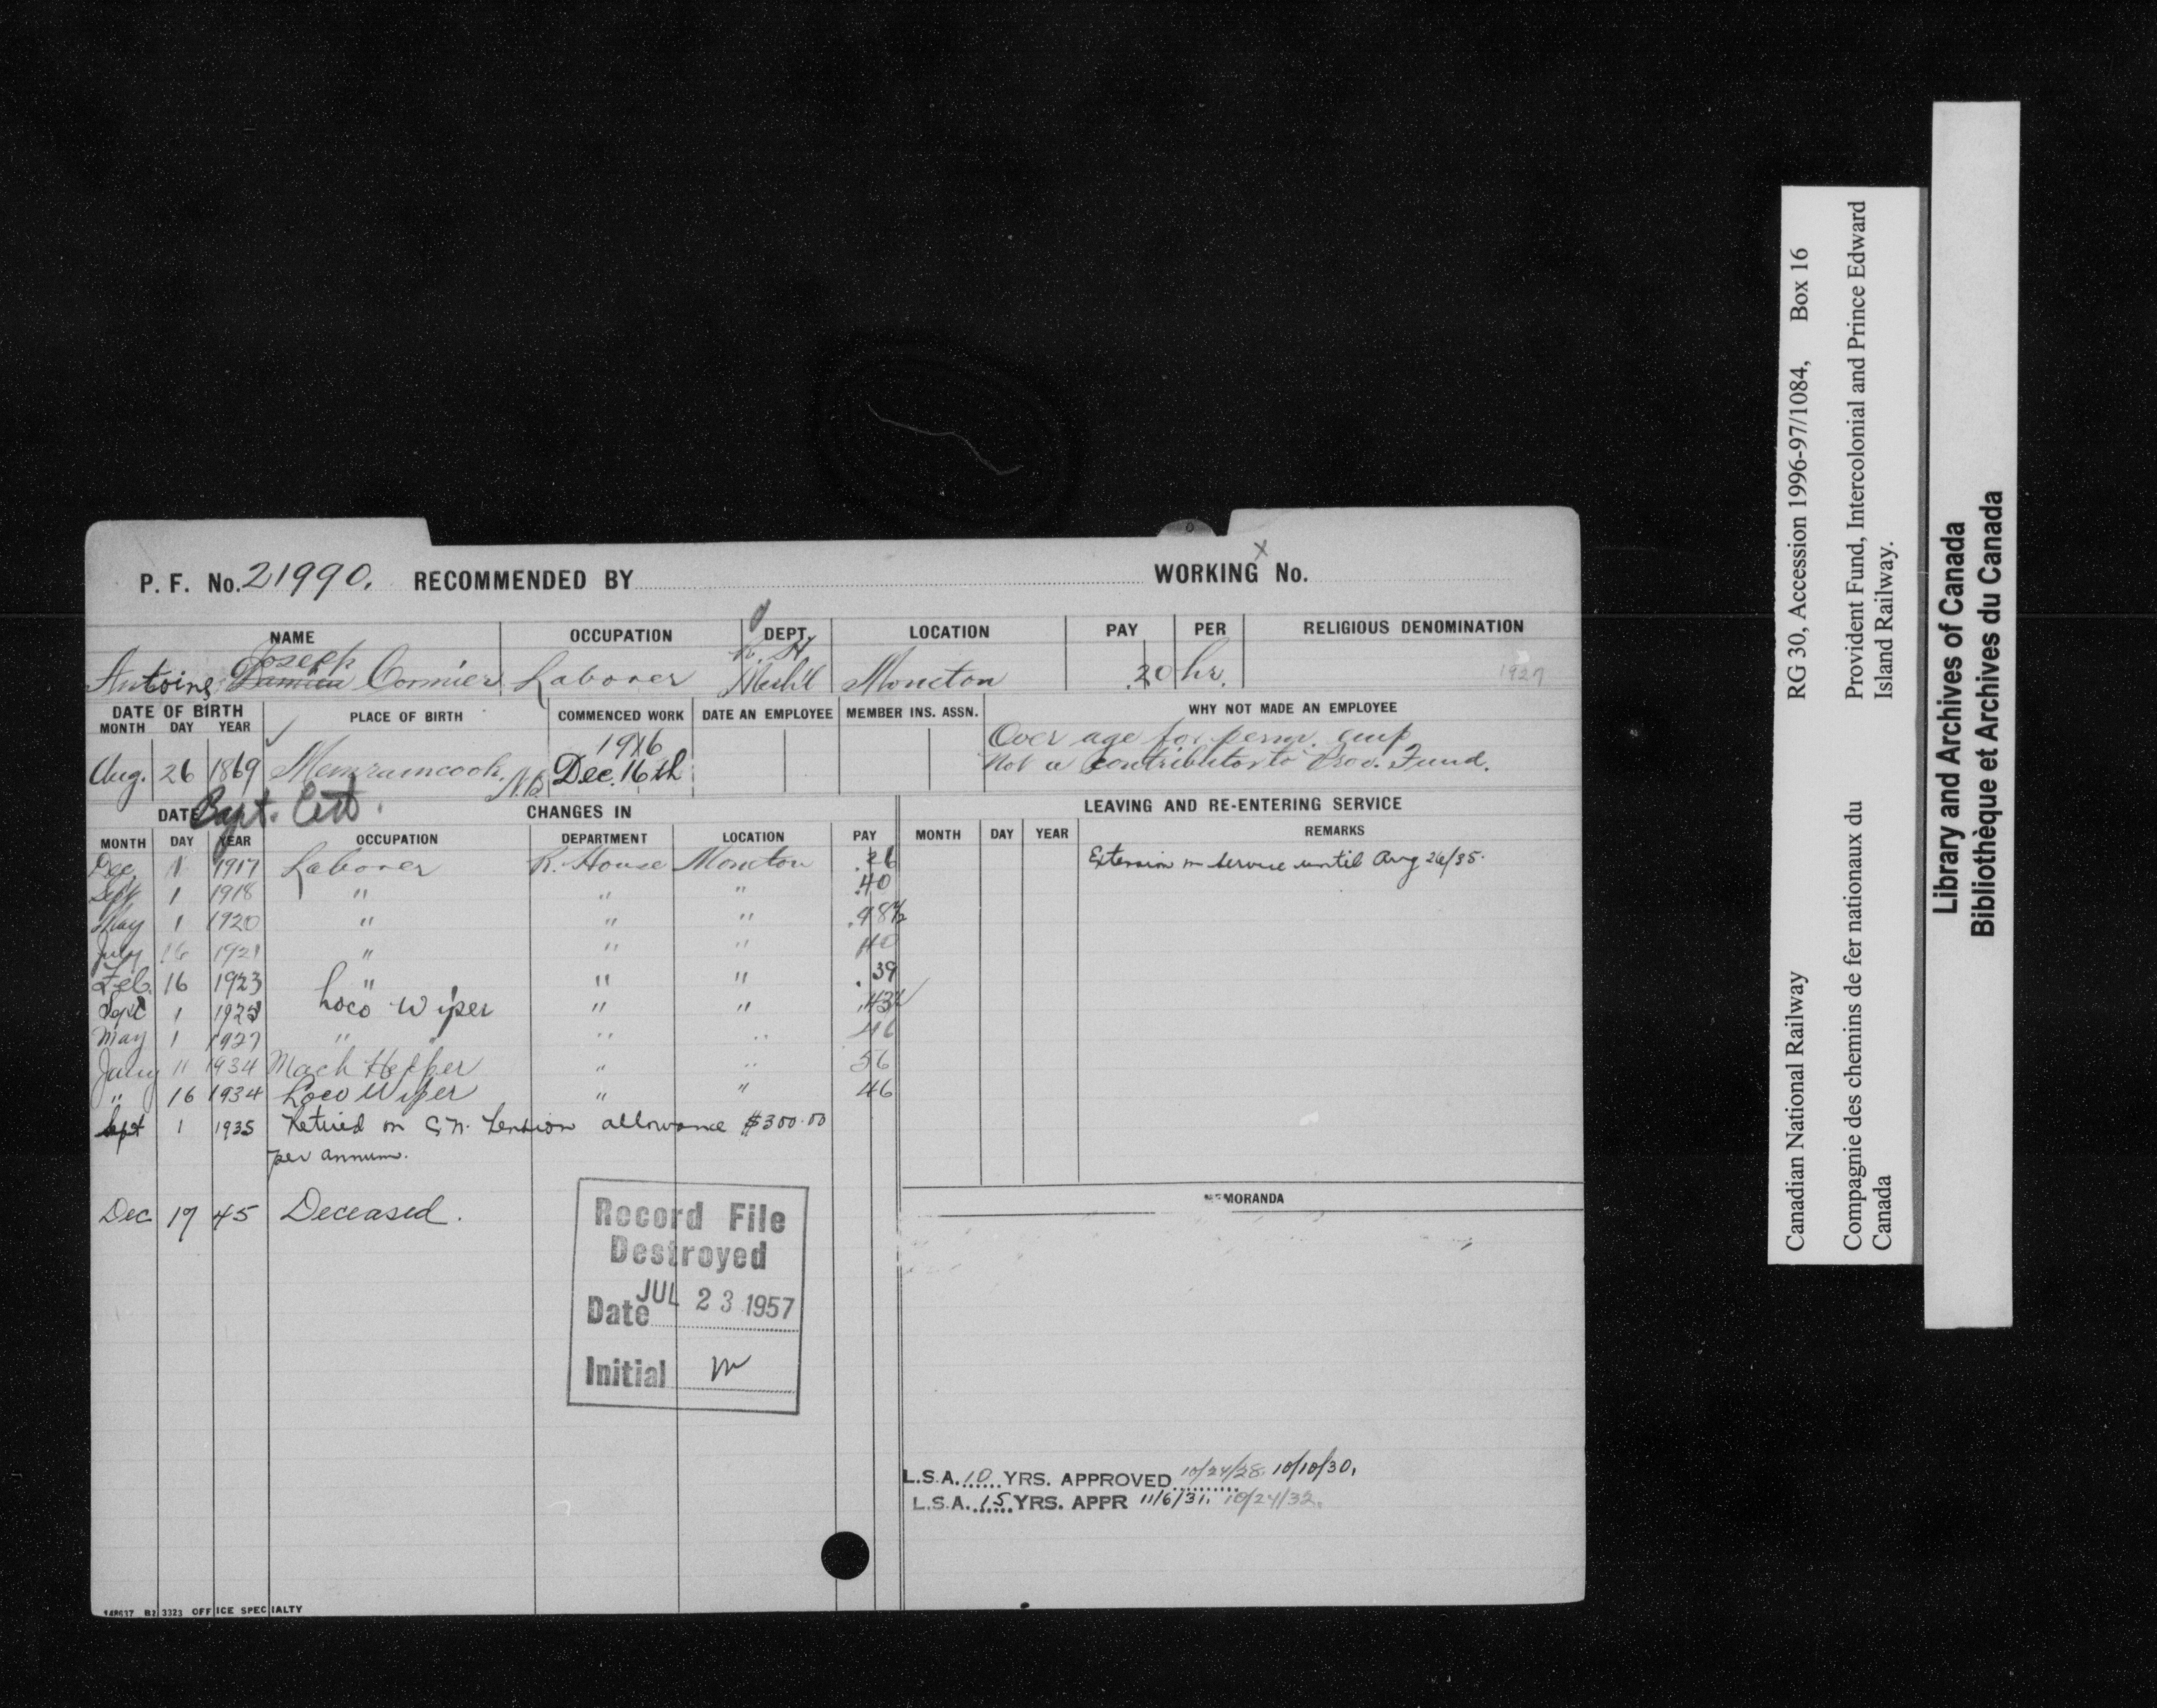 P. F. No. 21990. RECOMMENDED BY WORKING No.
x
NAME OCCUPATION DEPT. LOCATION PAY PER RELIGIOUS DENOMINATION
Joseph R. H.
Antoine Damien Cormier Laborer Mech'l Moncton .20 hr. 1927
DATE OF BIRTH PLACE OF BIRTH COMMENCED WORK DATE AN EMPLOYEE MEMBER INS. ASSN. WHY NOT MADE AN EMPLOYEE
MONTH DAY YEAR
1916 Over age for perm. emp
Aug. 26 1869 Memramcook, N.B. Dec. 16th Not a contributor to Prov. Fund.
Bapt. Cert.
DATE CHANGES IN LEAVING AND RE-ENTERING SERVICE
MONTH DAY YEAR OCCUPATION DEPARTMENT LOCATION PAY MONTH DAY YEAR REMARKS
Dec. 1 1917 Laborer R. House Moncton .26 Extension in service until Aug 26/35.
Sept 1 1918 " " " .40
May 1 1920 " " " .48½
July 16 1921 " " " 40
Feb. 16 1923 " " " .39
Sept 1 Loco Wiper " " .43½
May 1 1927 " " " " 46
Jany 11 1934 Mach Helper " " 56
" 16 1934 Loco Wiper " " 46
Sept 1 1935 Retired on C.N. Pension allowance $300.00
per annum.
Dec 17 45 Deceased.
MEMORANDA
Record File
Destroyed
Date JUL 23 1957
Initial
L.S.A. 10 YRS. APPROVED 10/24/28. 10/10/30.
L.S.A. 15 YRS. APPR 11/6/31. 10/24/32.
148617 B2 3323 OFFICE SPECIALTY
Canadian National Railway RG 30, Accession 1996-97/1084, Box 16
Compagnie des chemins de fer nationaux du Provident Fund, Intercolonial and Prince Edward
Canada Island Railway.
Library and Archives of Canada
Bibliothèque et Archives du Canada